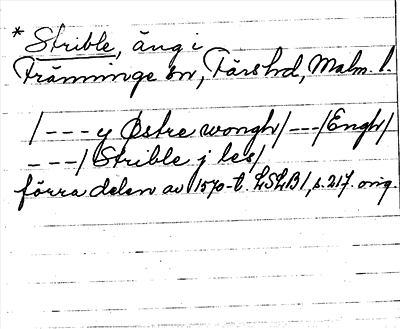 * Strible, äng i
Tränninge sn, Färs hd, Malm. l.
/--- y Østre wongh/---/Engh/
---/ Strible j les/
förra delen av 1570-t. LSLB 1, s. 217. orig.